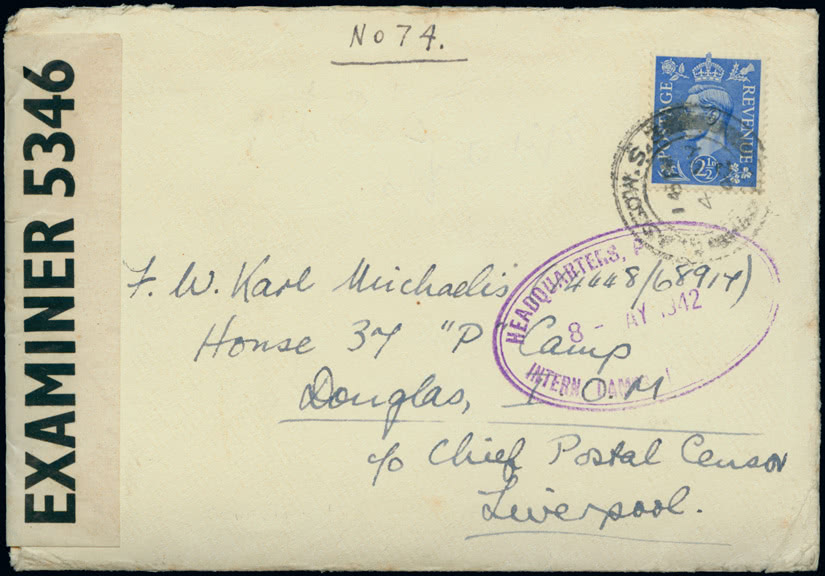 No 74.
EXAMINER 5346
POSTAGE REVENUE
2½D
F. W. Karl Michaelis 68914)
House 37 "P" Camp
Douglas, I.O.M
c/o Chief Postal Censor
Liverpool.
HEADQUARTERS, P
8 - AY 1942
INTERN CAMPS, I.